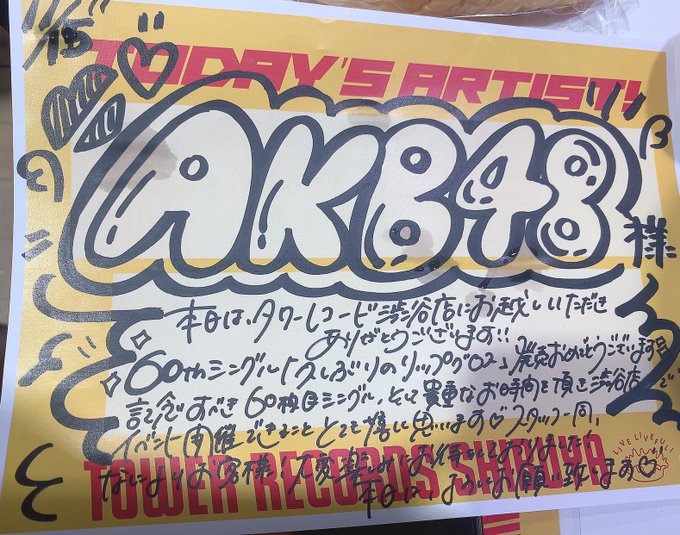 11/15
TODAY'S ARTIST!
AKB48
様
本日は、タワーレコード渋谷店にお越しいただき
ありがとうございます!!
60thシングル「久しぶりのリップグロス」発売おめでとうございます
記念すべき60枚目シングル、そして貴重なお時間を頂き渋谷店で
イベント開催できること とても嬉しく思います♡スタッフ一同、
なによりお客様も大変楽しみにお待ちしておりました!
本日は、よろしくお願い致します♡
TOWER RECORDS SHIBUYA
LIVE LIVEFUL!